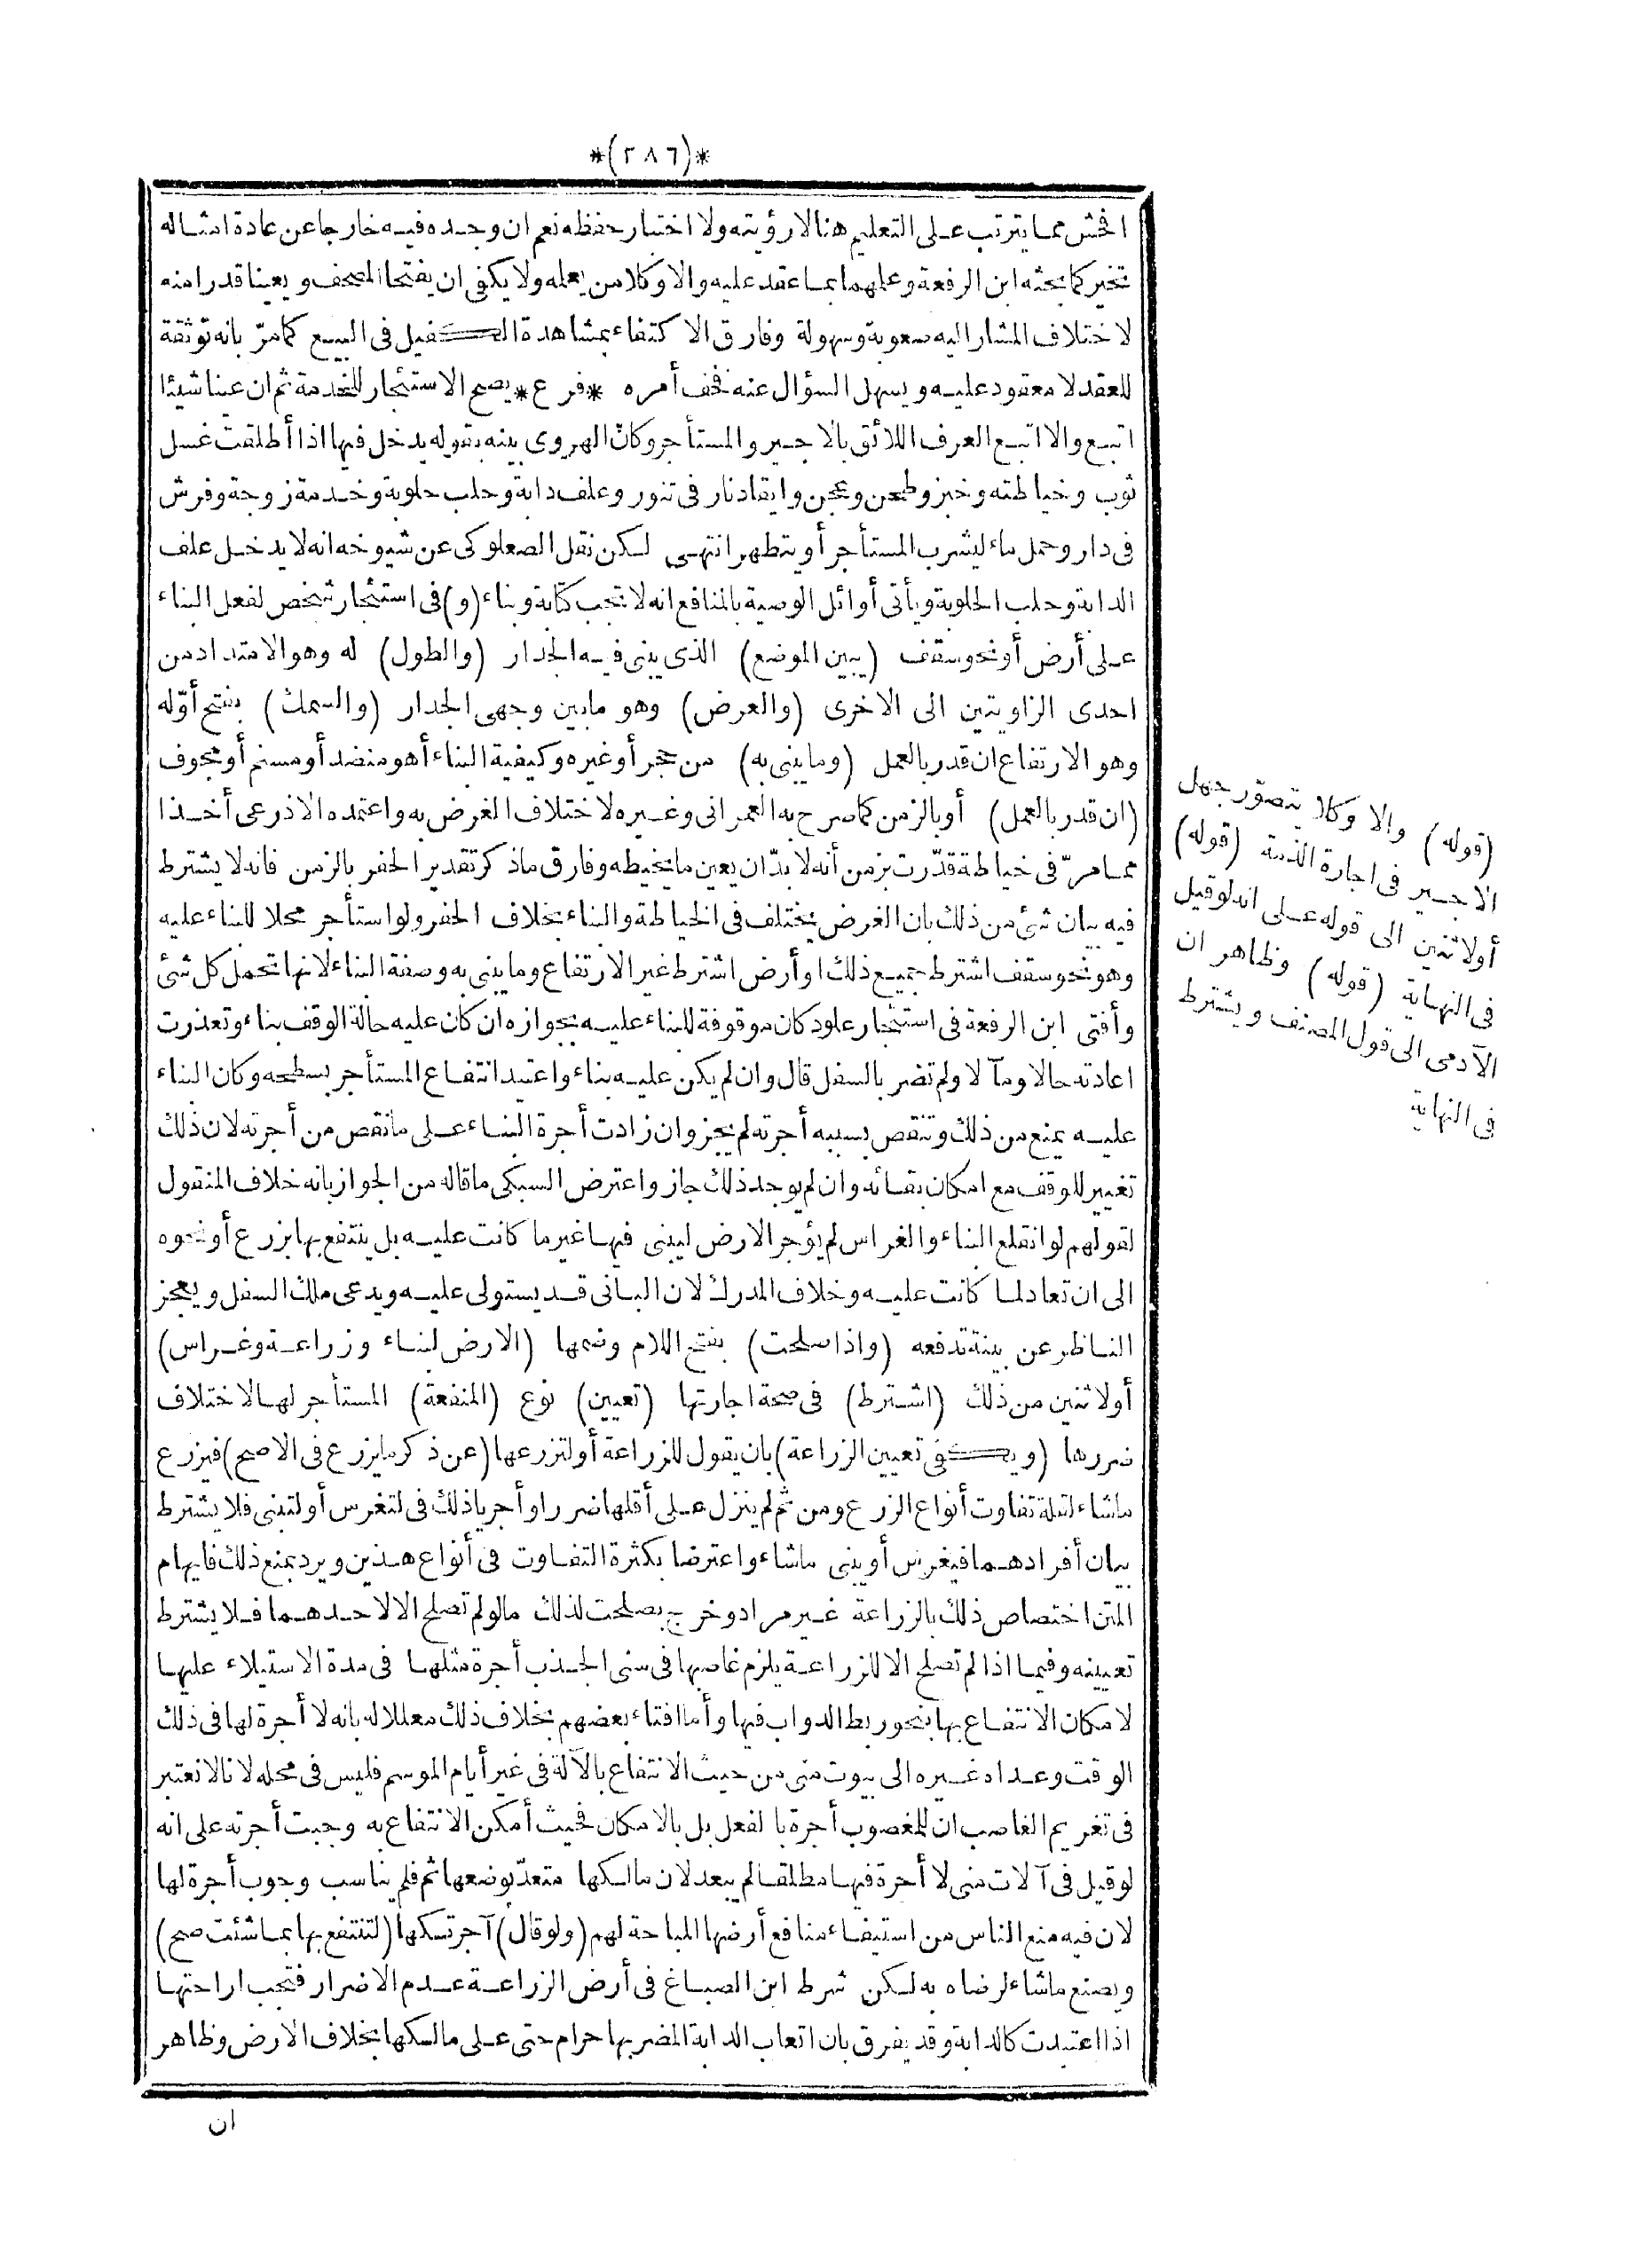 *(٢٨٦)*
افحش مما يترتب على التعليم هنا لا رؤيته ولا اختبار حفظه نعم ان وجده فيه خارجا عن عادة امثاله
تخير كما بحثه ابن الرفعة وعلمهما بما عقد عليه والا وكلا من يعلمه ولا يكفى ان يفتحا المصحف ويعينا قدرا منه
لاختلاف المشار اليه صعوبة وسهولة وفارق الاكتفاء بمشاهدة الكفيل فى البيع كما مرّ بانه توثقة
للعقد لا معقود عليه ويسهل السؤال عنه فخف أمره *فرع* يصح الاستئجار للخدمة ثم ان عينا شيئا
اتبع والا اتبع العرف اللائق بالاجير والمستأجر وكانّ الهروى بينه بقوله يدخل فيها اذا أطلقت غسل
ثوب وخياطته وخبز وطحن وعجن وايقاد نار فى تنور وعلف دابة وحلب حلوبة وخدمة زوجة وفرش
فى دار وحمل ماء ليشرب المستأجر أو يتطهر انتهى لكن نقل الصعلوكى عن شيوخه انه لا يدخل علف
الدابة وحلب الحلوبة ويأتى أوائل الوصية بالمنافع انه لا تجب كتابة وبناء (و) فى استئجار شخص لفعل البناء
على أرض أو نحو سقف (يبين الموضع) الذى يبنى فيه الجدار (والطول) له وهو الامتداد من
احدى الزاويتين الى الاخرى (والعرض) وهو مابين وجهى الجدار (والسمك) بفتح أوّله
وهو الارتفاع ان قدر بالعمل (وما يبنى به) من حجر أو غيره وكيفية البناء أهو منضد أو مسنم أو مجوف
(ان قدر بالعمل) أو بالزمن كما صرح به العمرانى وغيره لاختلاف الغرض به واعتمده الاذرعى أخذا
مما مرّ فى خياطة قدّرت بزمن أنه لا بدّ ان يعين ما يخيطه وفارق ماذكر تقدير الحفر بالزمن فانه لا يشترط
فيه بيان شئ من ذلك بان الغرض يختلف فى الخياطة والبناء بخلاف الحفر ولو استأجر محلا للبناء عليه
وهو نحو سقف اشترط جميع ذلك او أرض اشترط غير الارتفاع وما يبنى به وصفة البناء لانها تحمل كل شئ
وأفتى ابن الرفعة فى استئجار علو دكان موقوفة للبناء عليه بجوازه ان كان عليه حالة الوقف بناء وتعذرت
اعادته حالا ومآلا ولم تضر بالسفل قال وان لم يكن عليه بناء واعتيد انتفاع المستأجر بسطحه وكان البناء
عليه يمنع من ذلك وتنقص بسببه أجرته لم يجز وان زادت أجرة البناء على ما نقص من أجرته لان ذلك
تغيير للوقف مع امكان بقائه وان لم يوجد ذلك جاز واعترض السبكى ما قاله من الجواز بانه خلاف المنقول
لقولهم لو انقلع البناء والغراس لم يؤجر الارض ليبنى فيها غير ما كانت عليه بل ينتفع بها بزرع أو نحوه
الى ان تعاد لما كانت عليه وخلاف المدرك لان البانى قد يستولى عليه ويدعى ملك السفل ويعجز
الناظر عن بينة تدفعه (واذا صلحت) بفتح اللام وضمها (الارض لبناء وزراعة وغراس)
أو لاثنين من ذلك (اشترط) فى صحة اجارتها (تعيين) نوع (المنفعة) المستأجر لها لاختلاف
ضررها (ويكفى تعيين الزراعة) بان يقول للزراعة أو لتزرعها (عن ذكر ما يزرع فى الاصح) فيزرع
ماشاء لقلة تفاوت أنواع الزرع ومن ثم لم ينزل على أقلها ضررا وأجريا ذلك فى لتغرس أو لتبنى فلا يشترط
بيان أفرادهما فيغرس أو يبنى ماشاء واعترضا بكثرة التفاوت فى أنواع هذين ويرد بمنع ذلك فايهام
المتن اختصاص ذلك بالزراعة غير مراد وخرج بصلحت لذلك مالو لم تصلح الا لاحدهما فلا يشترط
تعيينه وفيما اذا لم تصلح الا للزراعة يلزم غاصبها فى سنى الجدب أجرة مثلها فى مدة الاستيلاء عليها
لامكان الانتفاع بها بنحو ربط الدواب فيها وأما افتاء بعضهم بخلاف ذلك معللا له بانه لا أجرة لها فى ذلك
الوقت وعداه غيره الى بيوت منى من حيث الانتفاع بالآلة فى غير أيام الموسم فليس فى محله لانا لا نعتبر
فى تغريم الغاصب ان للمغصوب أجرة بالفعل بل بالامكان فحيث أمكن الانتفاع به وجبت أجرته على انه
لو قيل فى آلات منى لا أجرة فيها مطلقا لم يبعد لان مالكها متعدّ بوضعها ثم فلم يناسب وجوب أجرة لها
لان فيه منع الناس من استيفاء منافع أرضها المباحة لهم (ولو قال) آجرتكها (لتنتفع بها بما شئت صح)
ويصنع ماشاء لرضاه به لكن شرط ابن الصباغ فى أرض الزراعة عدم الاضرار فتجب اراحتها
اذا اعتيدت كالدابة وقد يفرق بان اتعاب الدابة المضر بها حرام حتى على مالكها بخلاف الارض وظاهر
ان
(قوله) والا وكلا يتصوّر جهل
الاجير فى اجارة الذمة (قوله)
أو لاثنين الى قوله على انه لو قيل
فى النهاية (قوله) وظاهر ان
الآدمى الى قول المصنف ويشترط
فى النهاية